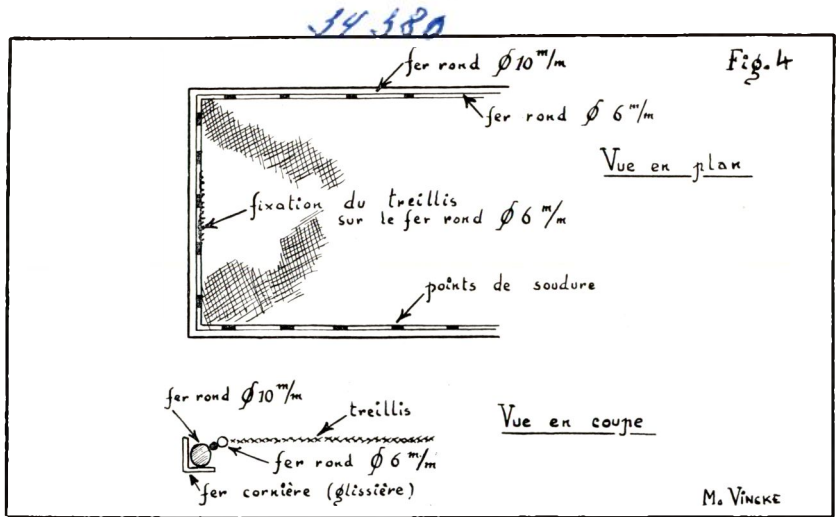 34 380
fer rond ∅ 10 m/m
Fig. 4
fer rond ∅ 6 m/m
Vue en plan
fixation du treillis
sur le fer rond ∅ 6 m/m
points de soudure
fer rond ∅ 10 m/m
treillis
Vue en coupe
fer rond ∅ 6 m/m
fer cornière (glissière)
M. VINCKE